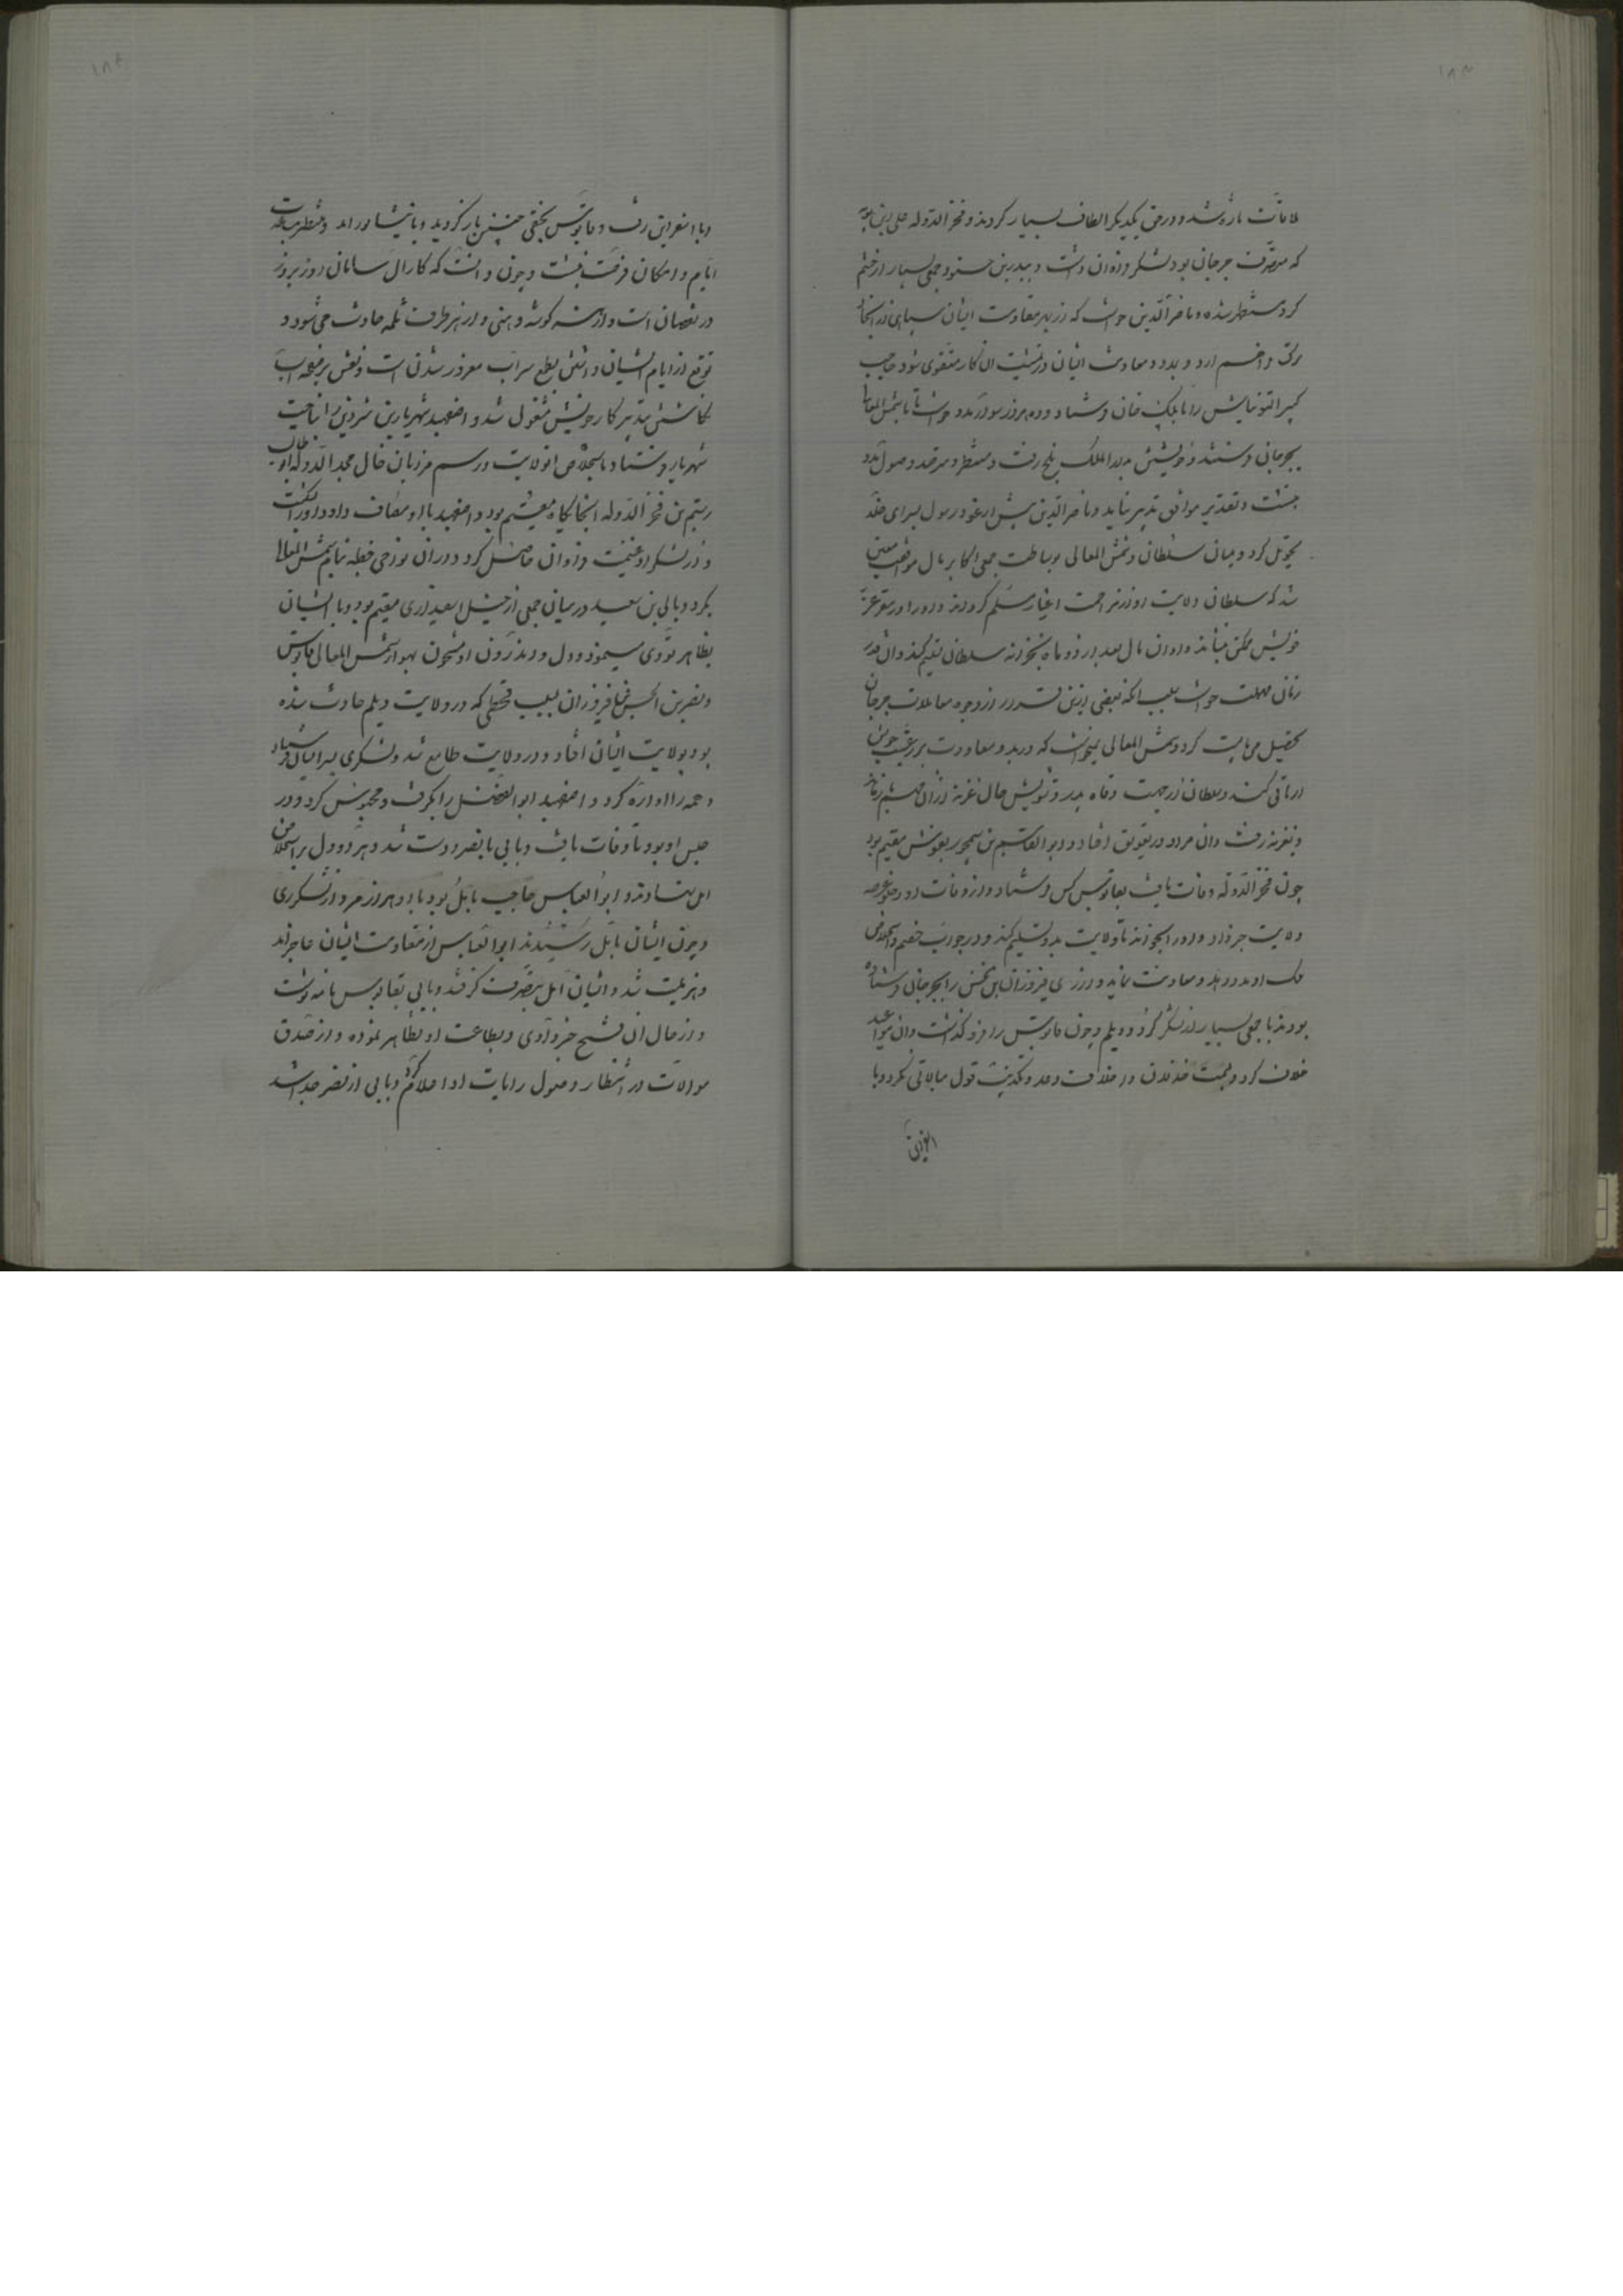 ملاقات تازه شد و در حق یکدیگر الطاف بسیار کردند و فخر الدوله علی بن بویه
که متصرف جرجان بود لشکر فراوان داشت و ببدر بن حسنویه و جمعی بسیار از حشم
کرد مستظهر شده و ناصرالدین خواست که از بهر مقاومت ایشان سپاهی از انجا
ترک فراهم ارد و بمدد و معاونت ایشان در تمشیت ان کار متقوی شود حاجب
کبیر التونتاش را بایلک خان فرستاد و ده هزار سوار مدد خواست تا با شمس المعالی
بجرجان فرستند و خویشتن بدار الملک بلخ رفت و منتظر و مترصد وصول مدد
بنشست و تقدیر موافق تدبیر نیامد و ناصرالدین پیش از عود رسول بسرای خلد
تحویل کرد و میان سلطان و شمس المعالی بوساطت جمعی اکابر مال مواضعت معین
شد که سلطان ولایت او از مزاحمت اغیار مسلم کرداند و او را در مقر عز
خویش ممکن بنشاند و او ان مال بعد از دو ماه بخزانه سلطان تسلیم کند و ان قدر
زمان مهلت خواست بسبب انکه بعضی ازین قدر از وجوه معاملات جرجان
تحصیل می بایست کرد و شمس المعالی نمیخواست که در بدو معاودت بر رعیت خویش
ارتاقی کند و سلطان از جهت وفاه پدر و تشویش حال غزنه از ان مهم باز ماند
و بغزنه رفت و ان مراد در تعویق افتاد و ابو القاسم بن سیمجور بقومش مقیم بود
چون فخر الدوله وفات یافت بقابوس کس فرستاد و از وفات او و خلو عرصه
ولایت خبر داد و او را بخواند تا ولایت بدو تسلیم کند و در جواب خصم و استخلاص
ملک او مدد دهد و معاونت نماید و از ری فیروزان بن الحسن را بجرجان فرستاده
بودند با جمعی بسیار از لشکر کرد و دیلم و چون قابوس را فرو گذاشت و ان مواعید
خلاف کرد و بسمت خذلان در خلاف وعد و تکذیب قول مبالاتی نکرد و با
اسفراین
و با اسفراین رفت و قابوس بخفی حنین باز گردید و با نیشابور امد و منتظر مساعدت
ایام و امکان فرصت بنشست و چون دانست که کار ال سامان روز بروز
در نقصان است و از هر گوشه وهنی و از هر طرف ثلمه حادث می شود و
توقع از ایام ایشان داشتن بطمع سراب مغرور شدن است و نقش بر صفحه اب
نگاشتن بتدبیر کار خویش مشغول شد و اصفهبد شهریار بن شروین را بناحیت
شهریار فرستاد باستخلاص ان ولایت و رستم مرزبان خال مجد الدوله ابو طالب
رستم بن فخر الدوله انجایگاه مقیم بود و اصفهبد با او مصاف داد و او را بشکست
و از لشکر او غنیمت فراوان حاصل کرد و در ان نواحی خطبه بنام شمس المعالی
بکرد و بابی بن سعید در میان جمعی از جیل باستنداری مقیم بود و با ایشان
بظاهر تودی مینمود و دل و اندرون او مشحون بهوای شمس المعالی قابوس
و نصر بن الحسن فیروزان بسبب قحطی که در ولایت دیلم حادث شده
بود بولایت ایشان افتاد و در ولایت طامع شد و لشکری بسر ایشان فرستاد
و همه را اواره کرد و اصفهبد ابو الفضل را بگرفت و محبوس کرد و در
حبس او بود تا وفات یافت و بابی با نصر دوست شد و هر دو دل بر استخلاص
امل نهادند و ابو العباس حاجب بامل بود با دو هزار مرد از لشکر ری
و چون ایشان بامل رسیدند ابو العباس از مقاومت ایشان عاجز اند
و هزیمت شد و ایشان امل بتصرف گرفتند و بابی بقابوس نامه نوشت
و از حال ان فتح خبر داد و بطاعت او تظاهر نموده و از صدق
موالات در انتظار وصول رایات او اعلام کرد و بابی از نصر جدا شد